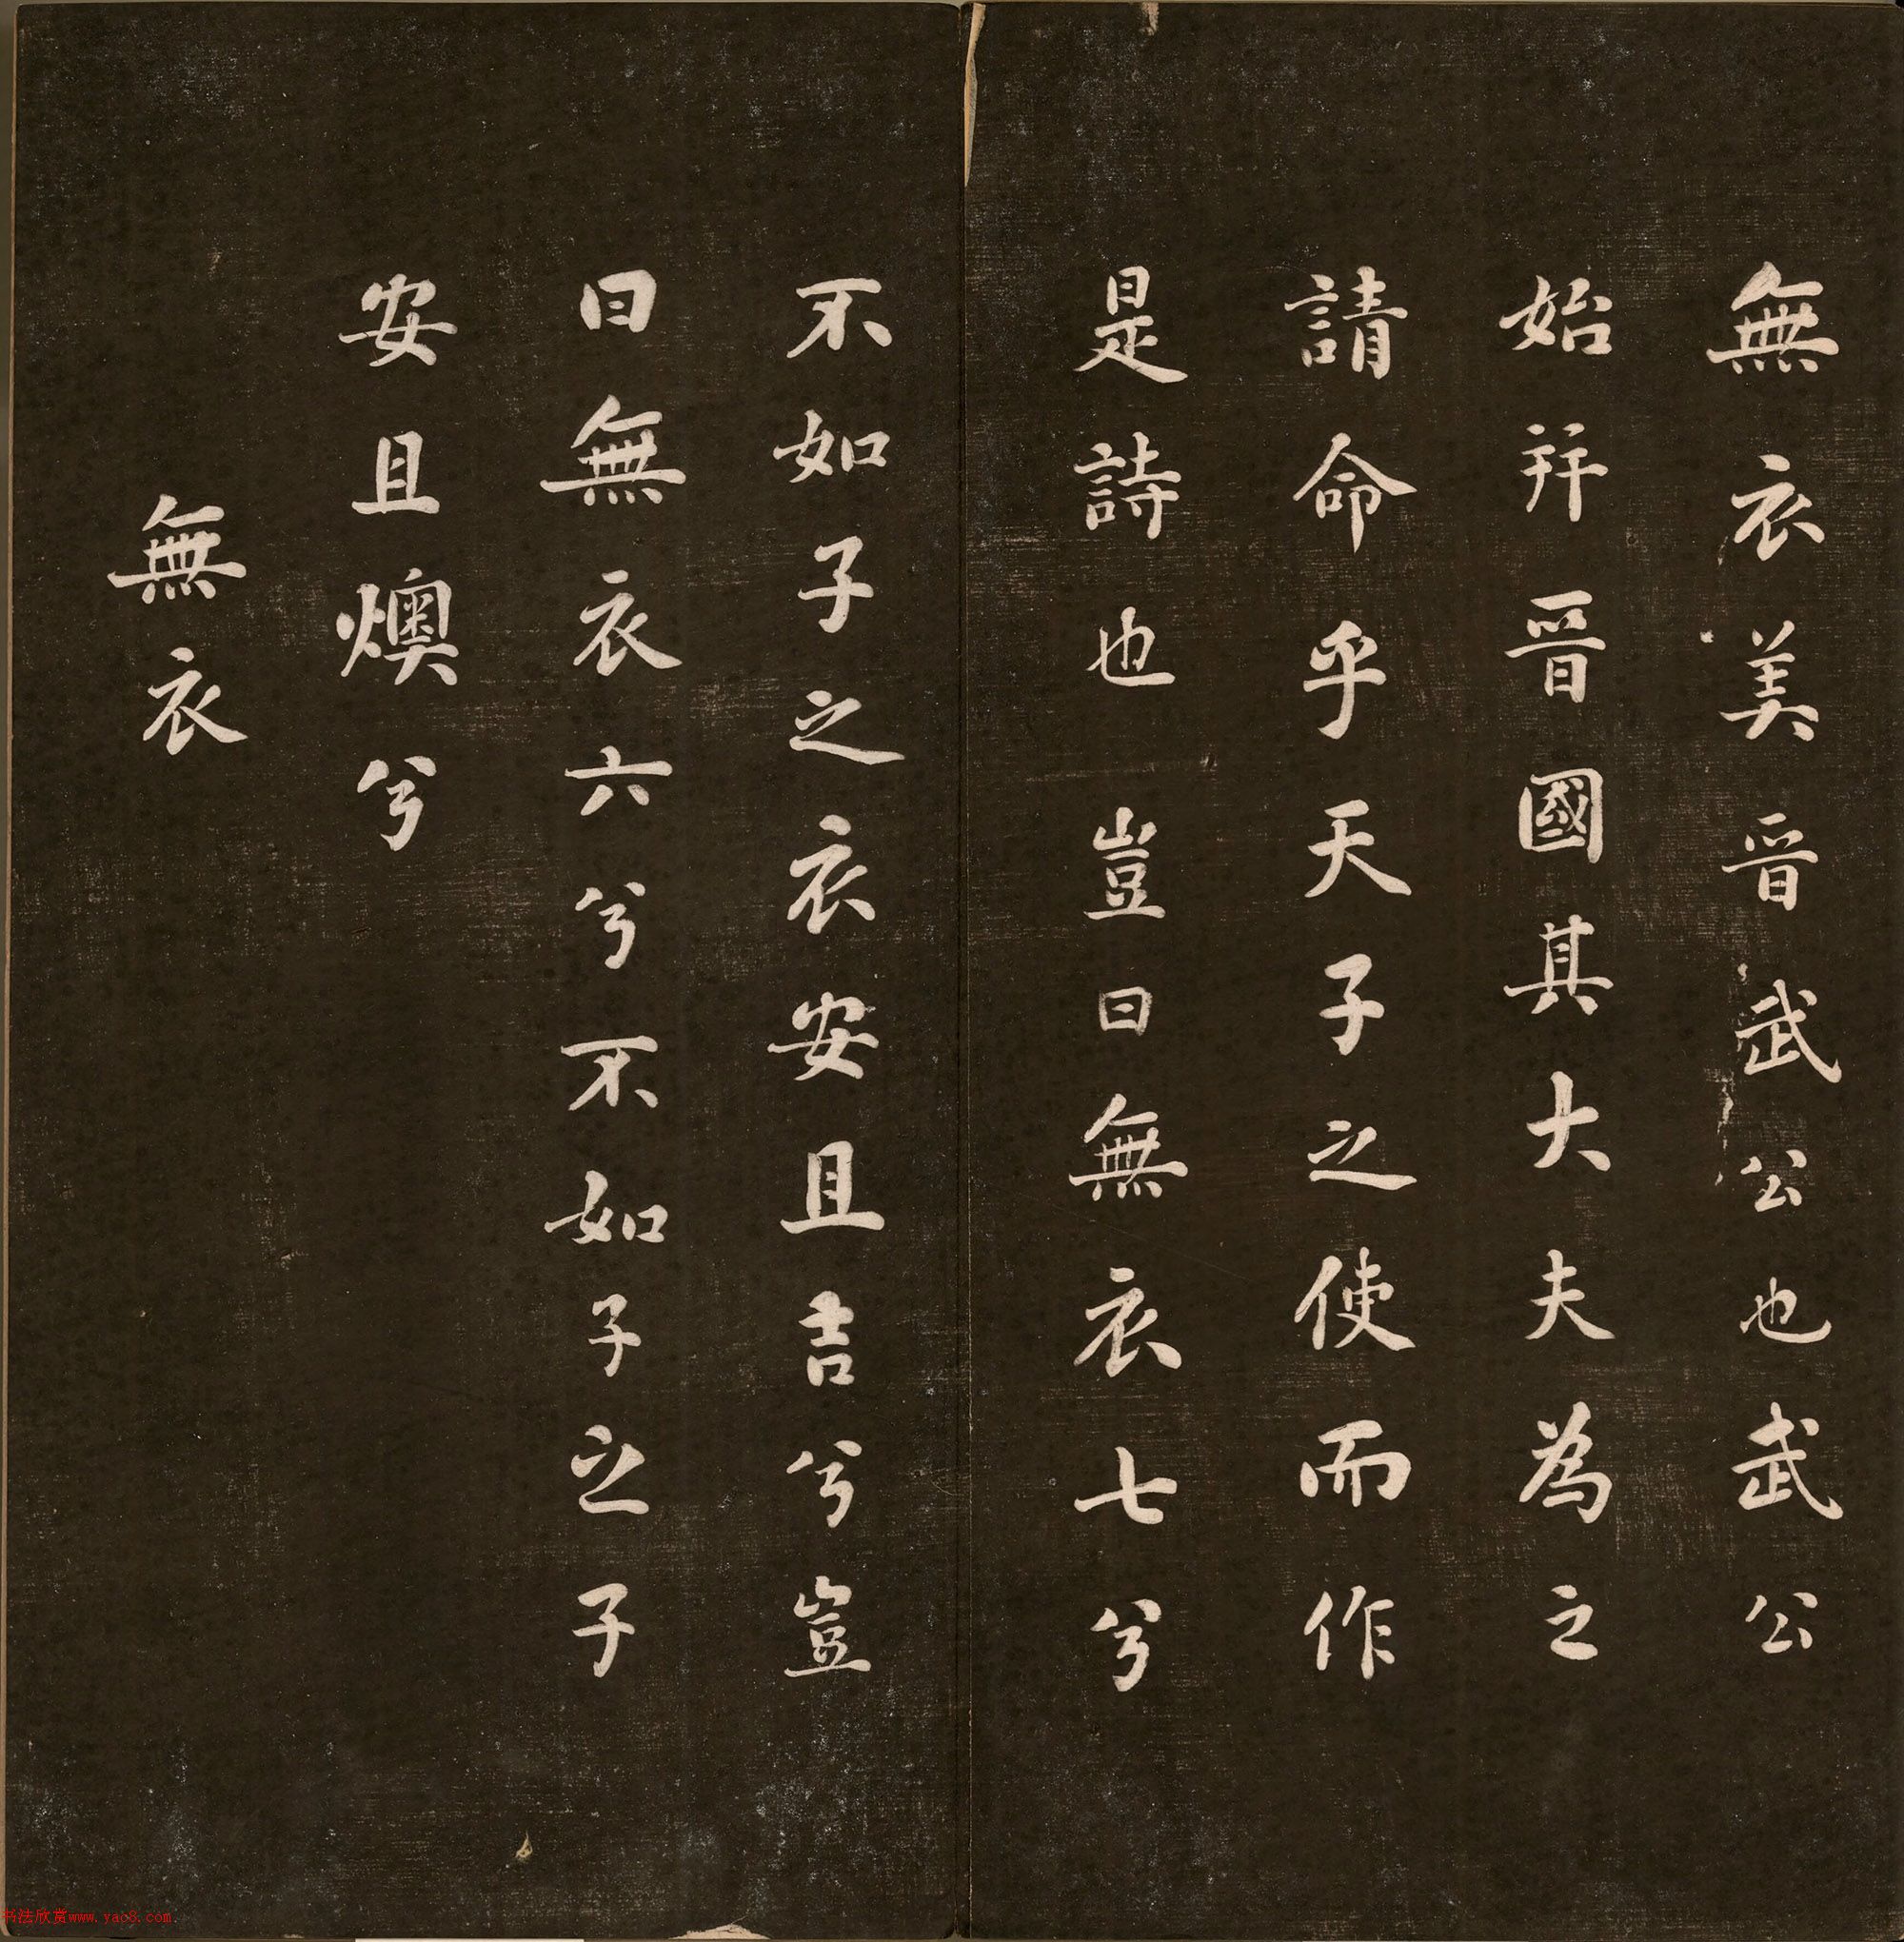 無衣美晉武公也武公
始并晉國其大夫為之
請命乎天子之使而作
是詩也 豈曰無衣七兮
不如子之衣安且吉兮豈
曰無衣六兮不如子之子
安且燠兮
無衣
书法欣赏www.yac8.com